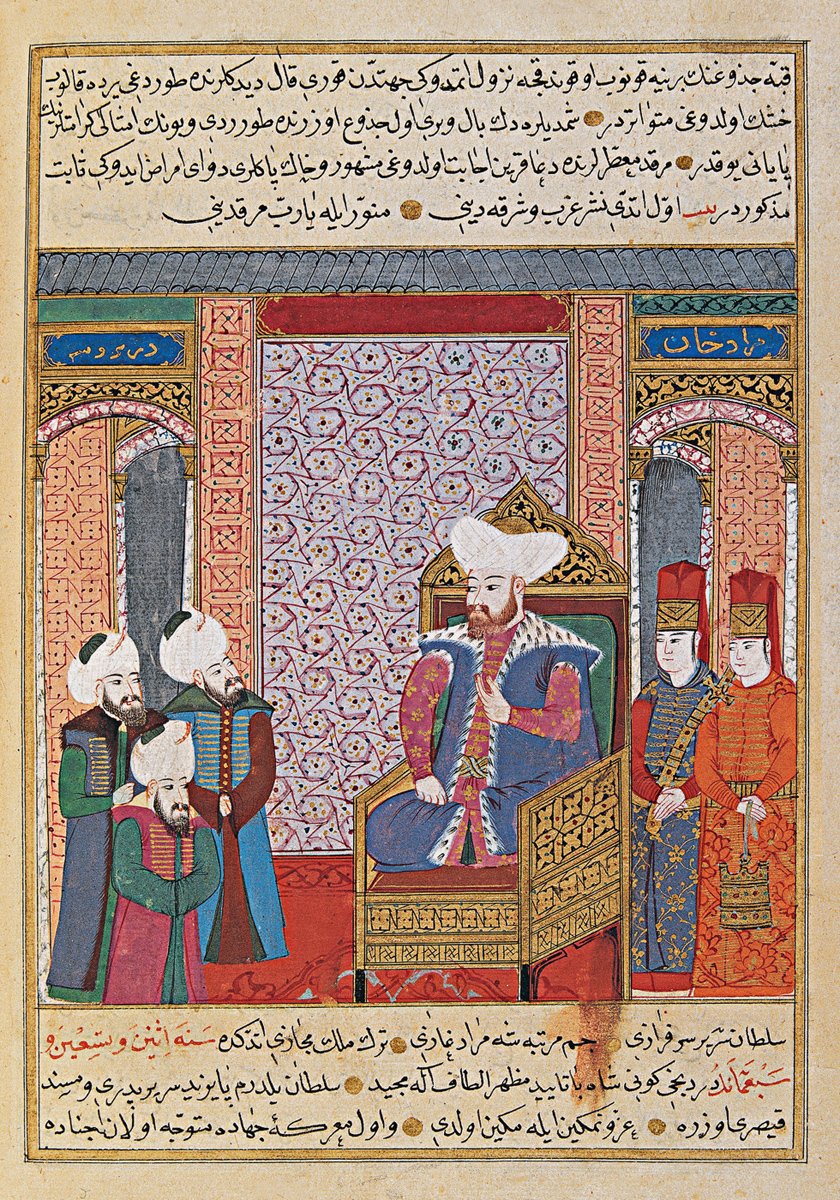 قبه جذوعنك برينه قونوب اوقوندقجه نزول اتمدوكي جهتدن قوري قال ديدكلرنده طوردغي يرده قالوب
خشك اولدوغى متواتردر شمديلره دك بال وبرى اول جذوع اوزرنده طورردي وبونك امثالى كراماتلرنك
پاياني يوقدر مرقد معطرلرنده دعا قرين اجابت اولدوغى مشهور وخاك پاكلرى دواى امراض ايدوكي ثابت
مذكوردر بيت اول اتدي نشر غرب وشرقه ديني منور ايله يارب مرقديني
مراد خان
در بروسه
سلطان سرير سرفرازي جم مرتبه شه مراد غازي ترك ملك مجازي اتدكده سنة اثنين وتسعين و
سبعمائه در كوني شاه با تاييد مظهر الطاف اله مجيد سلطان يلدرم بايزيد سرير پدري ومسند
قيصري اوزره عز وتمكين ايله مكين اولدي واول معركۀ جهاده متوجه اولان اجناده